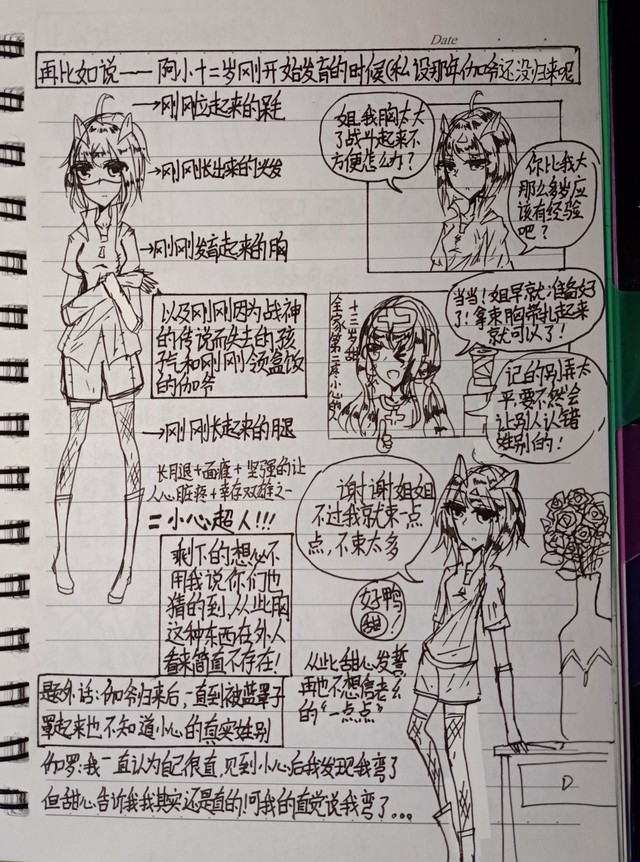 Date
再比如说——阿小十二岁刚开始发育的时候(私设那年伽爷还没归来呢
→刚刚立起来的呆毛
→刚刚长出来的头发
→刚刚发育起来的胸
以及刚刚因为战神
的传说而失去的孩
子气和刚刚领盒饭
的伽爷
→刚刚长起来的腿
长腿+面瘫+坚强的让
人心脏疼+幸存双雄之一
=小心超人!!!
剩下的想必不
用我说你们也
猜的到,从此胸
这种东西在外人
看来简直不存在!
姐,我胸太大
了战斗起来不
方便怎么办?
你比我大
那么多岁应
该有经验
吧?
十三岁甜
全家第二疼小心的人
当当!姐早就准备好
了!拿束胸带扎起来
就可以了!
记的别弄太
平,要不然会
让别人认错
性别的!
谢谢姐姐
不过我就束一点
点,不束太多
好鸭
甜!
从此甜心发誓
再也不想信老幺
的“一点点”
题外话:伽爷归来后,一直到被蓝罩子
罩起来也不知道小心的真实性别
伽罗:我一直认为自己很直,见到小心后我发现我弯了
但甜心告诉我我其实还是直的!可我的直觉说我弯了...
D